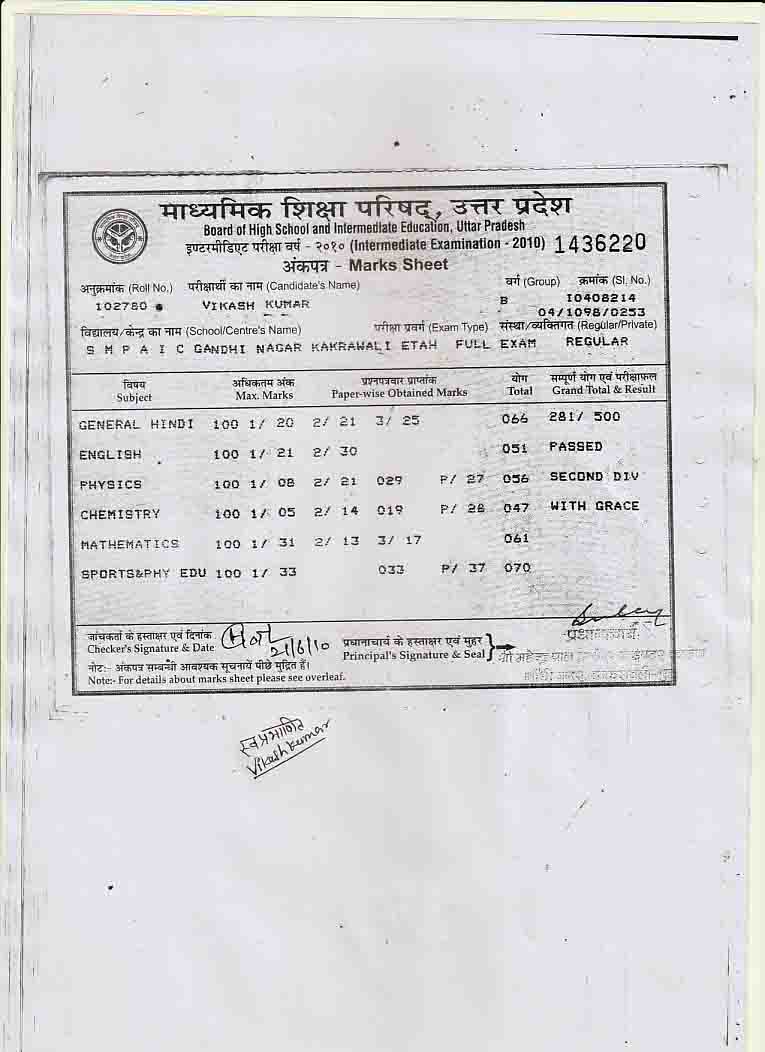 माध्यमिक शिक्षा परिषद्, उत्तर प्रदेश
Board of High School and Intermediate Education, Uttar Pradesh
इण्टरमीडिएट परीक्षा वर्ष - २०१० (Intermediate Examination - 2010) 1436220
अंकपत्र - Marks Sheet
अनुक्रमांक (Roll No.) परीक्षार्थी का नाम (Candidate's Name) वर्ग (Group) क्रमांक (Sl. No.)
102780 VIKASH KUMAR B I0408214
04/1098/0253
विद्यालय/केन्द्र का नाम (School/Centre's Name) परीक्षा प्रवर्ग (Exam Type) संस्था/व्यक्तिगत (Regular/Private)
S M P A I C GANDHI NAGAR KAKRAWALI ETAH FULL EXAM REGULAR
विषय अधिकतम अंक प्रश्नपत्रवार प्राप्तांक योग सम्पूर्ण योग एवं परीक्षाफल
Subject Max. Marks Paper-wise Obtained Marks Total Grand Total & Result
GENERAL HINDI 100 1/ 20 2/ 21 3/ 25 066 281/ 500
ENGLISH 100 1/ 21 2/ 30 051 PASSED
PHYSICS 100 1/ 08 2/ 21 029 P/ 27 056 SECOND DIV
CHEMISTRY 100 1/ 05 2/ 14 019 P/ 28 047 WITH GRACE
MATHEMATICS 100 1/ 31 2/ 13 3/ 17 061
SPORTS&PHY EDU 100 1/ 33 033 P/ 37 070
जांचकर्ता के हस्ताक्षर एवं दिनांक 21/6/10 प्रधानाचार्य के हस्ताक्षर एवं मुहर
Checker's Signature & Date Principal's Signature & Seal
प्रधानाचार्य
नोट:- अंकपत्र सम्बन्धी आवश्यक सूचनायें पीछे मुद्रित हैं।
Note:- For details about marks sheet please see overleaf.
स्वप्रमाणित
Vikash Kumar